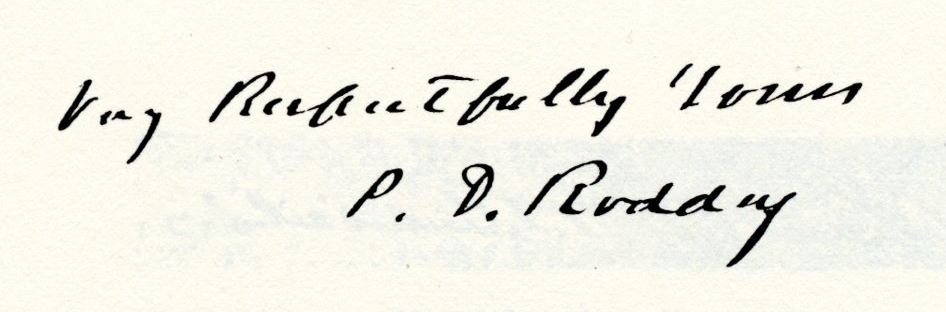 Very Respectfully Yours
P. D. Roddey